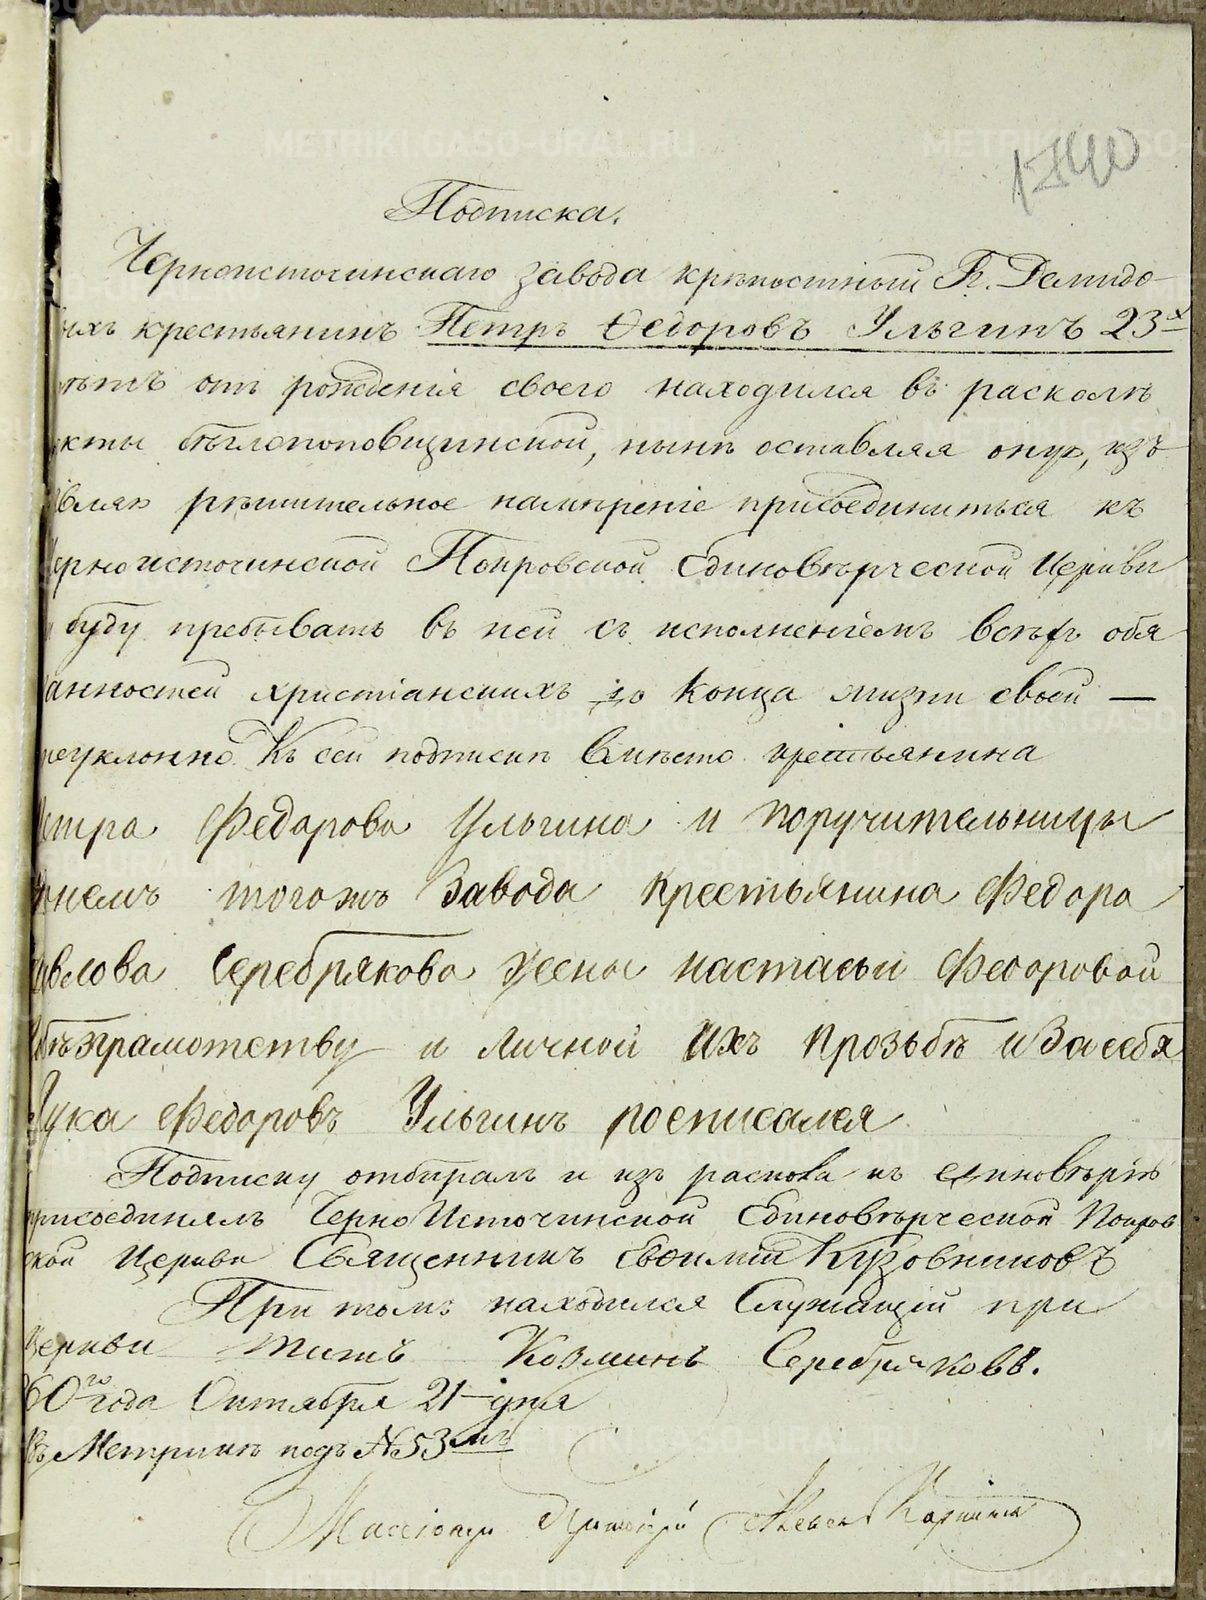 METRIKI.GASO-URAL.RU
1840
Подписка.
Черноисточинскаго завода крѣпостный Гг. Демидо-
ыхъ крестьянинъ Петръ Ѳедоровъ Ульгинъ 23х
лѣтъ отъ рожденія своего находился въ расколѣ
кты бѣглопоповщинской, нынѣ оставляя оную, изъ
вляю рѣшительное намѣреніе присоединиться къ
ерноисточинской Покровской Единовѣрческой Церкви
буду пребывать въ ней съ исполненіемъ всѣхъ обя
анностей христіанскихъ до конца жизни своей —
еуклонно. Къ сей подпискѣ вмѣсто крестьянина
етра Федорова Ульгина и поручительницы
онемъ тогожъ Завода крестьянина Федора
авлова Серебрякова жены настасьи Федоровой
бѣзграмотству и личной ихъ прозьбѣ и За себя
Лука Федоровъ Ульгинъ росписался
Подписку отбиралъ и изъ раскола къ единовѣрію
присоединялъ ЧерноИсточинской Единовѣрческой Покров
ской Церкви Священникъ Евѳимій Кузовниковъ
При томъ находился Служащій при
Церкви Титъ Козминъ Серебряковъ.
60го года Октября 21 дня
Въ Метрикѣ подъ №53мъ
Миссіонеръ